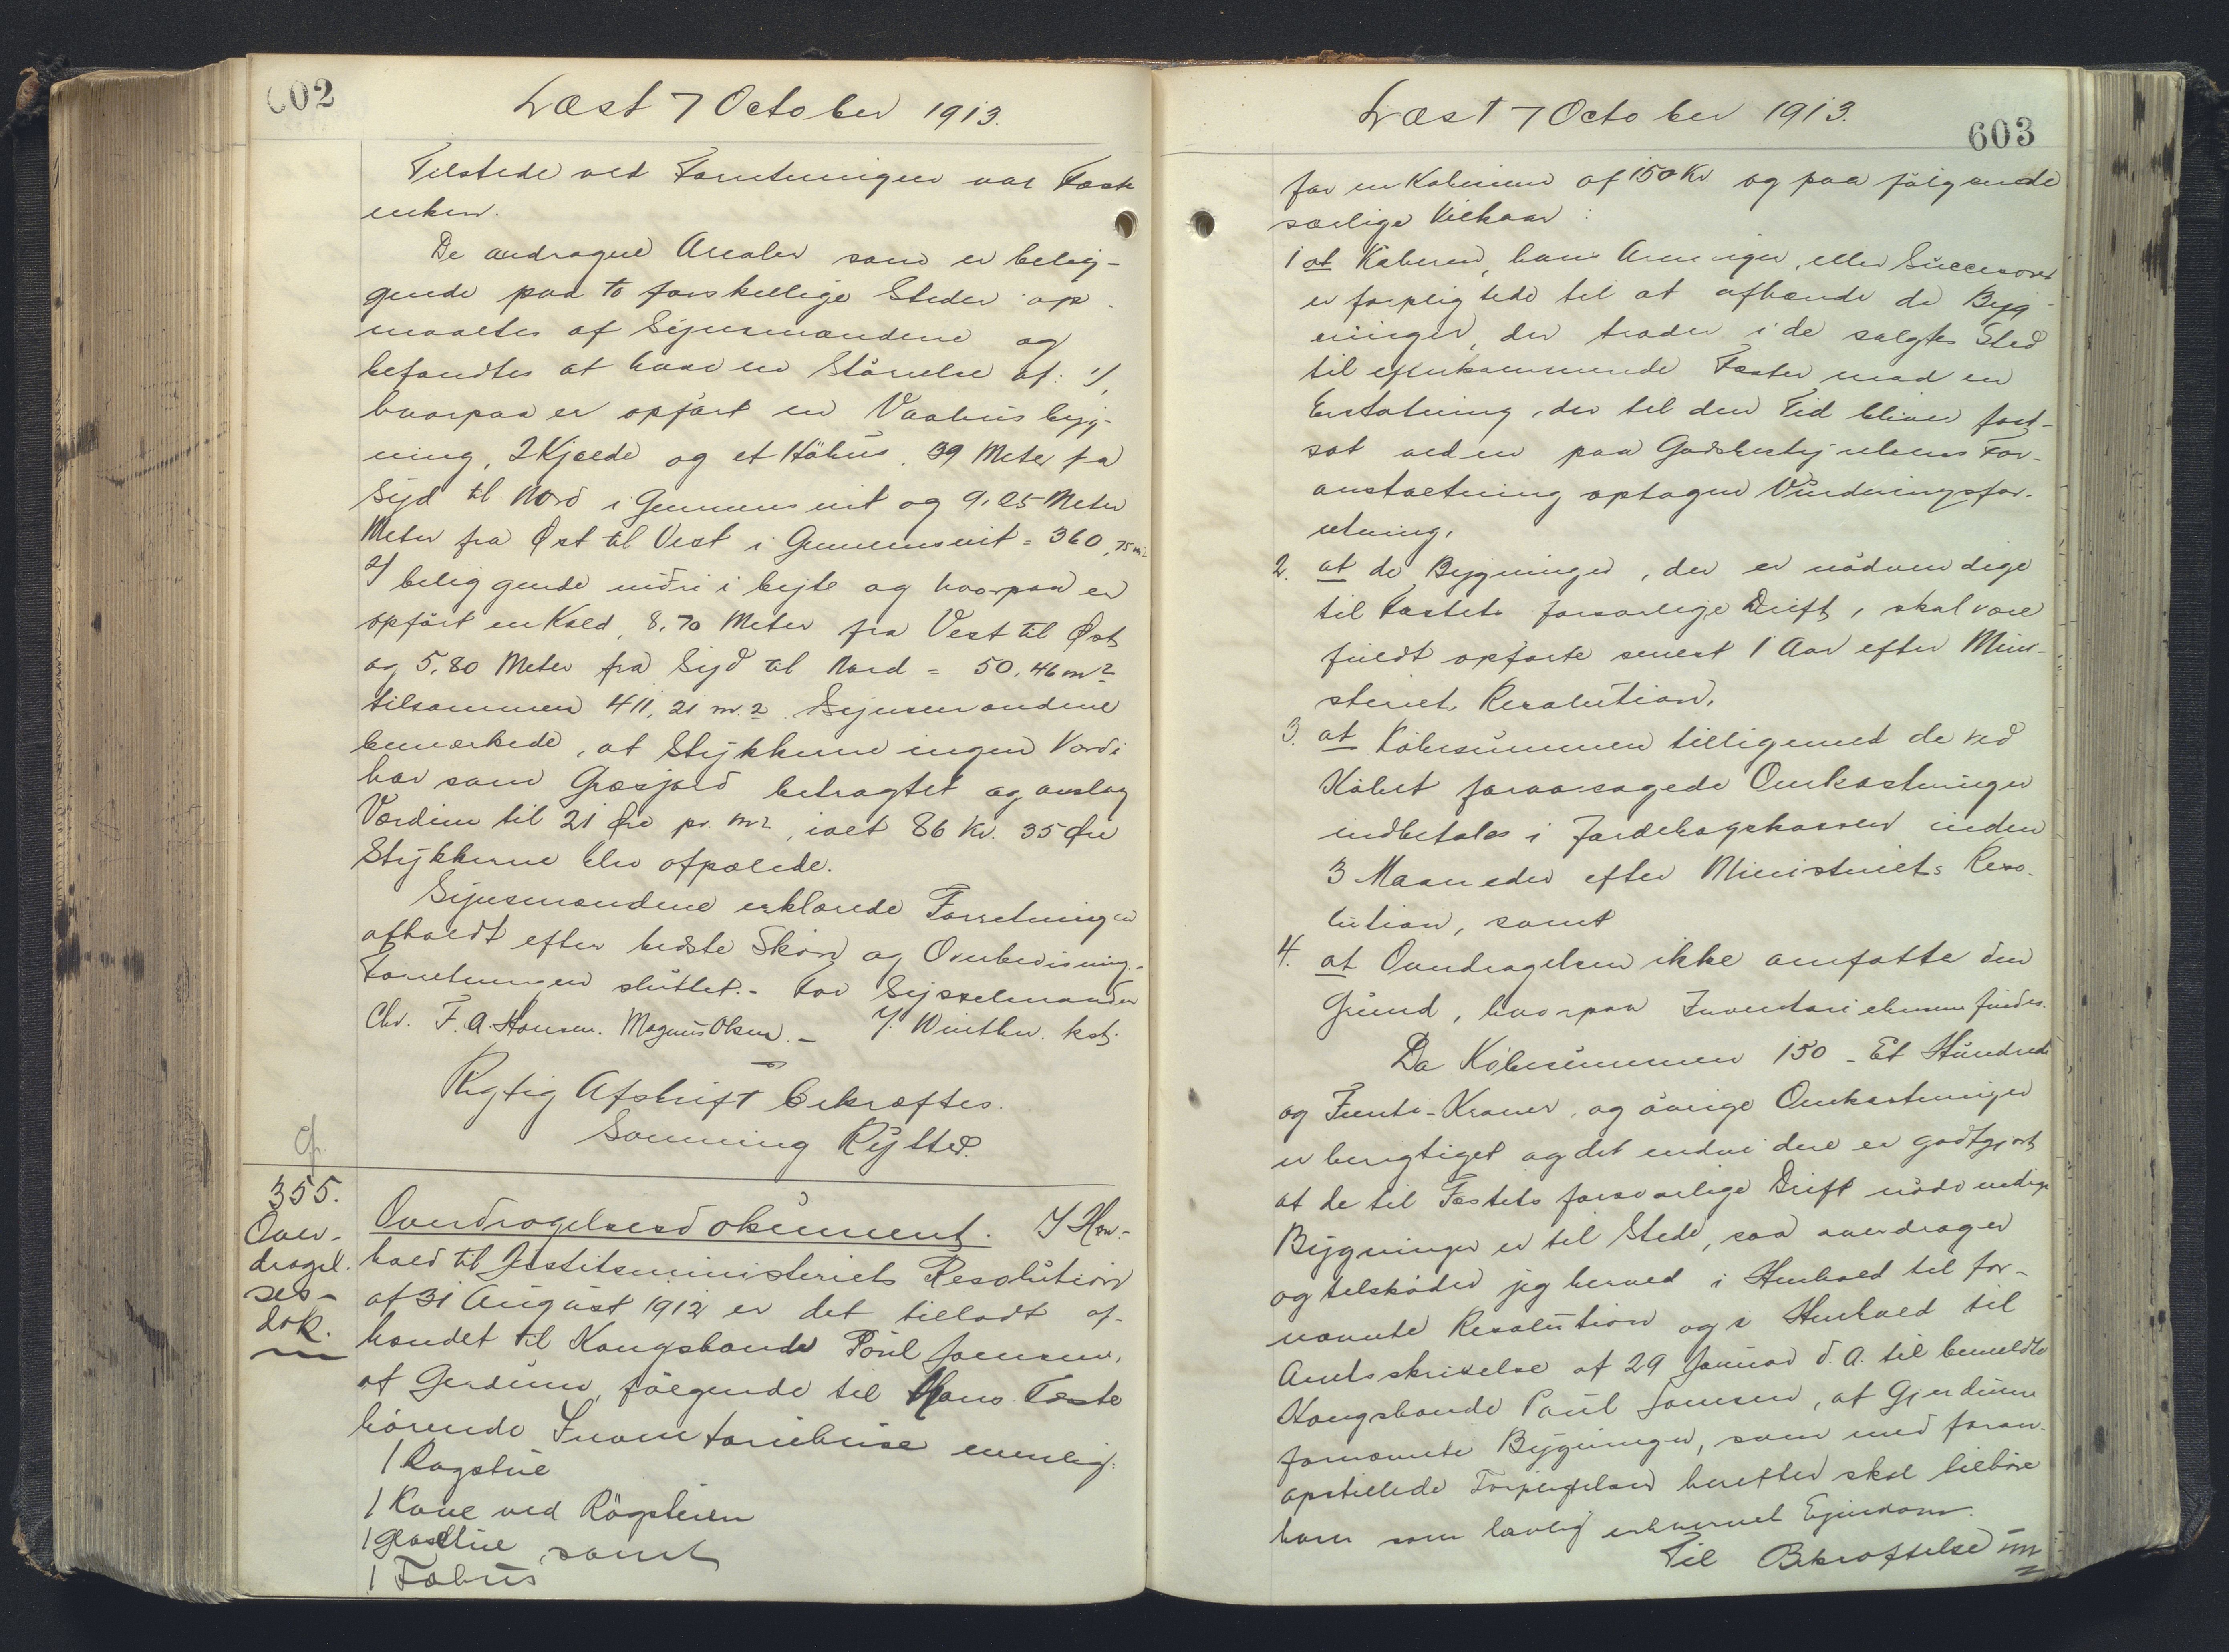 602
Læst 7 October 1913.
Tilstede ved Forretningen var Fæst
enken.
De andragne Arealer som er belig-
gende paa to forskellige Steder op-
maaltes af Synsmændene og
befandtes at have en Størrelse af: 1/,
hvorpaa er opført en Vaahus byg-
ning, 2 Kjælde og et Høhus, 39 Meter fra
Syd til Nord i Gennemsnit og 9,25 Meter
Meter fra Øst til Vest i Gennemsnit = 360,75 m2
2/ beliggende nidri i bejte og hvorpaa er
opført en Kæld, 8,70 Meter fra Vest til Øst
og 5,80 Meter fra Syd til Nord = 50,46 m2
tilsammen 411,21 m.2. Synsmændene
bemærkede, at Stykkerne ingen Værdi
har som Græsjord betragtet og anslog
Værdien til 21 Øre pr. m2, ialt 86 Kr. 35 Øre
Stykkerne blev afpælede.
Synsmændene erklærede Forretningen
afholdt efter bedste Skøn og Overbevisning.-
Forretningen sluttet.- For Sysselmanden
Chr. F. A. Hansen. Magnus Olsen.- J. Winther. kst.
Rigtig Afskrift bekræftes.
Sonning Rytter.
355.
Over-
dragel-
ses-
dok.
Overdragelsesdokument. I Hen-
hold til Justitsministeriets Resolution
af 31 August 1912 er det tilladt af-
hændet til Kongsbonde Poul Joensen,
af Gerdum, følgende til Hans Fæste
hørende Inventariehuse nemlig:
1 Røgstue
1 Kove ved Røgstuen
1 Glasstue, samt
1 Fæhus
Læst 7 October 1913.
603
for en Købesum af 150 Kr. og paa følgende
særlige Vilkaar:
1 at Køberen, hans Arvinger, eller Successorer
er forpligtede til at afhænde de Byg-
ninger, der træder i de solgtes Sted
til efterkommende Fæster mod en
Erstatning, der til den Tid bliver fast-
sat ved en paa Godsbestyrelsens For-
anstaltning optagen Vurderingsfor-
retning,
2. at de Bygninger, der er nødvendige
til Fæstets forsvarlige Drift, skal være
fuldt opførte senest 1 Aar efter Mini-
steriets Resolution,
3. at Købesummen tilligemed de ved
Købet foraarsagede Omkostninger
indbetales i Jordebogskassen inden
3 Maaneder efter Ministeriets Reso-
lution, samt
4. at Overdragelsen ikke omfatte den
Grund, hvorpaa Inventariehusene findes.
Da Købesummen 150 - Et Hundrede
og Femti - Kroner, og øvrige Omkostninger
er berigtiget og det endvidere er godtgjort
at de til Fæstets forsvarlige Drift nødvendige
Bygninger er til Stede, saa overdrager
og tilskøder jeg herved i Henhold til for-
nævnte Resolution og i Henhold til
Amtsskrivelse af 29 Januar d. A. til bemeldte
Kongsbonde Poul Joensen, af Gjerdum
fornævnte Bygninger, som med foran-
opstillede Forpligtelser herefter skal tilhøre
ham som lovlig erhvervet Ejendom.
Til Bekræftelse un